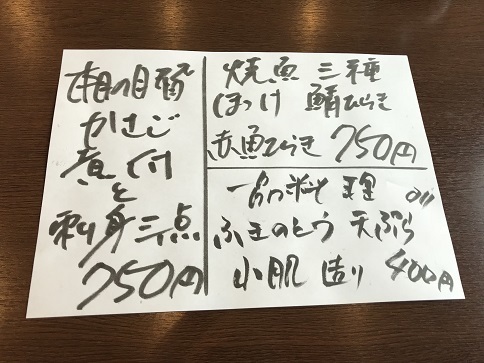 本日の日替
かさご
煮付
と
刺身三点
750円
焼魚 三種
ほっけ 鯖ひらき
赤魚ひらき 750円
一品料理
ふきのとう 天ぷら
小肌 造り 400円